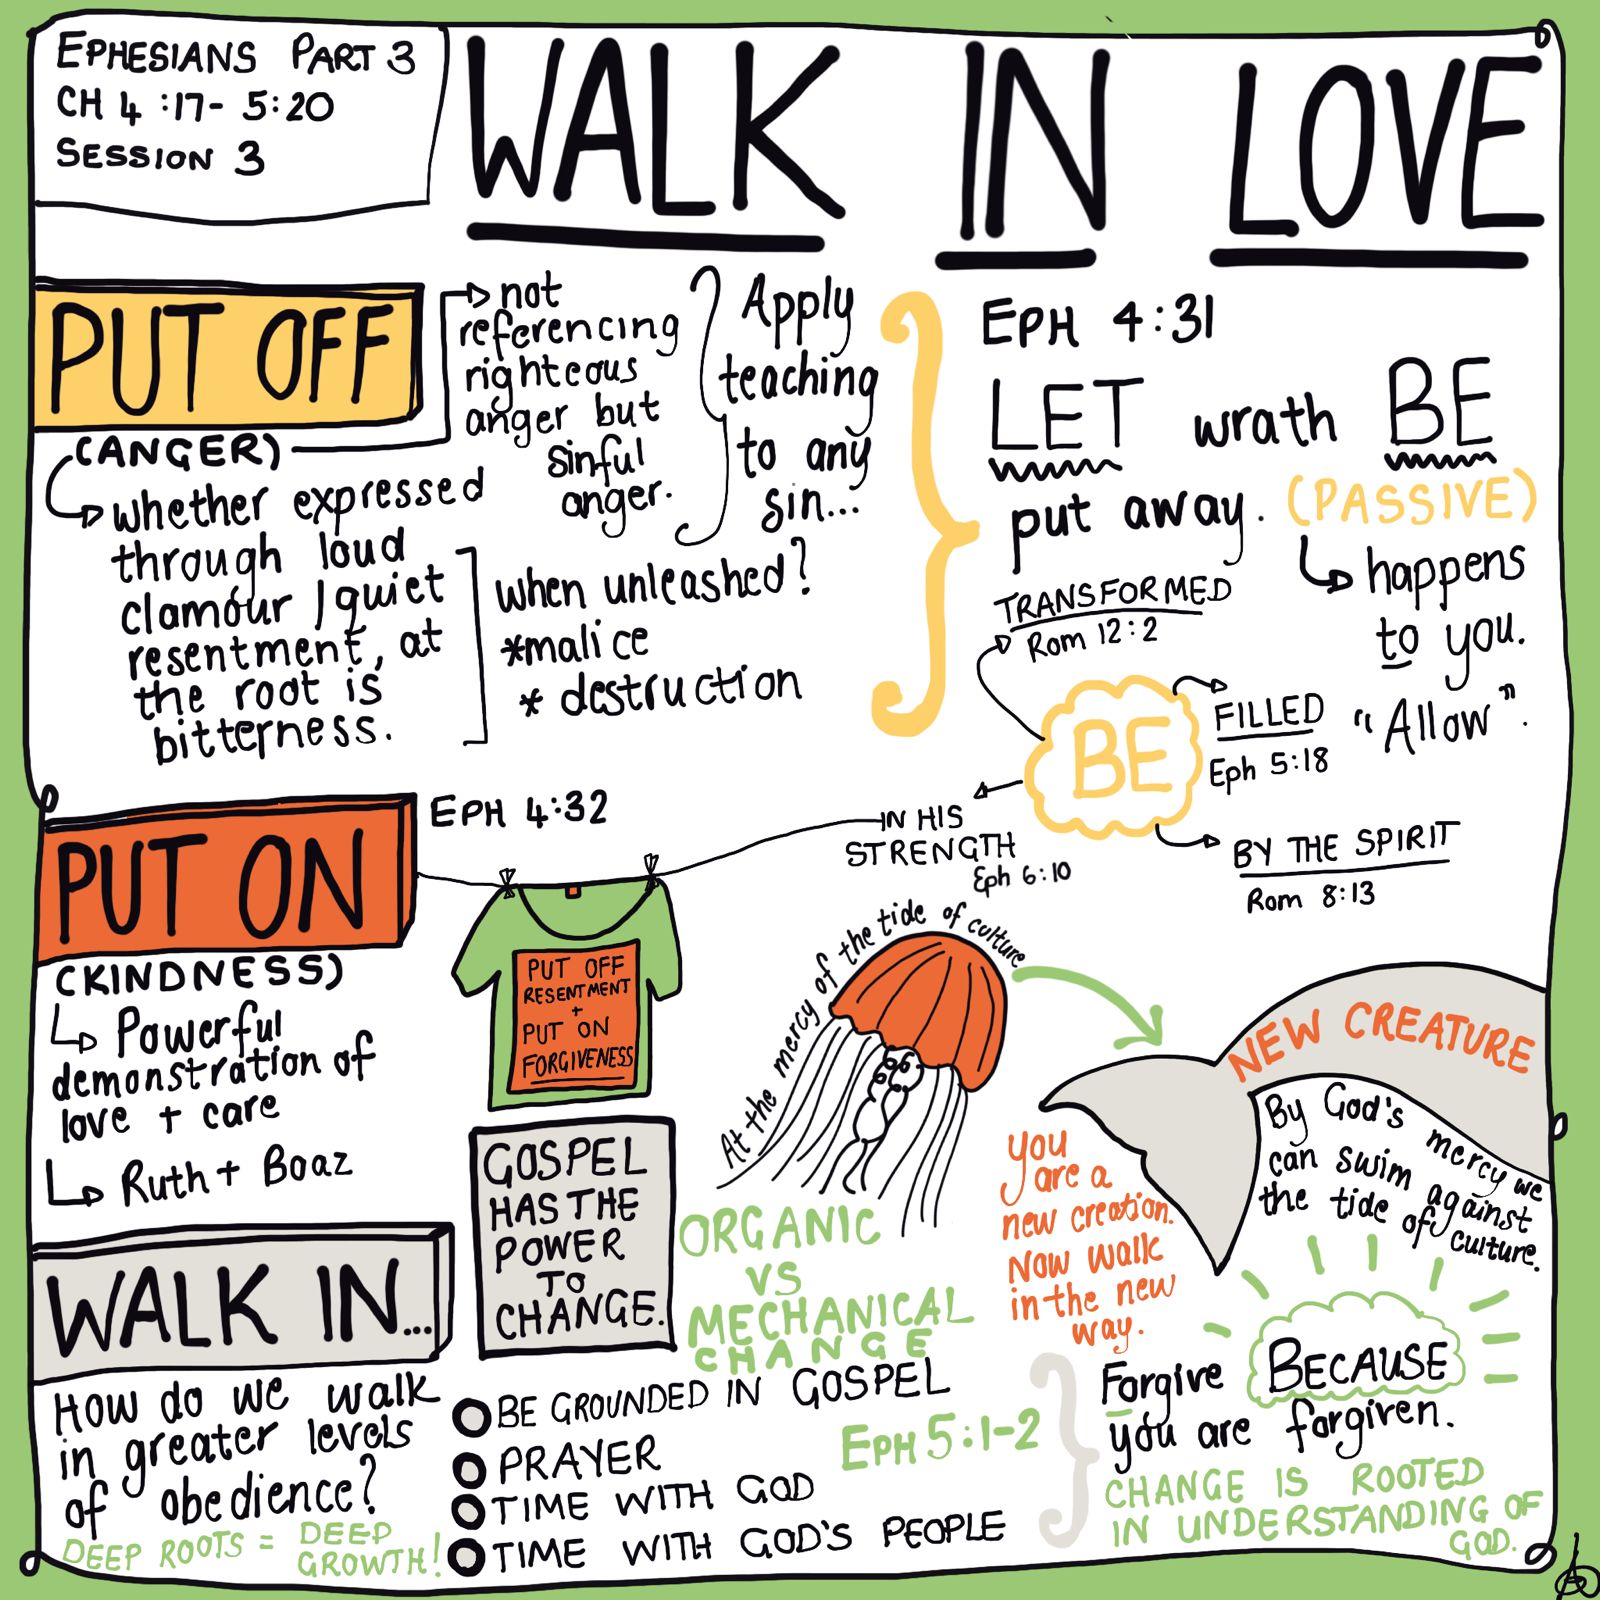 EPHESIANS PART 3
CH 4:17- 5:20
SESSION 3
WALK IN LOVE
PUT OFF
(ANGER)
not
referencing
righteous
anger but
sinful
anger.
Apply
teaching
to any
sin...
whether expressed
through loud
clamour / quiet
resentment, at
the root is
bitterness.
when unleashed?
*malice
* destruction
EPH 4:31
LET wrath BE
put away. (PASSIVE)
happens
to you.
"Allow".
BE
TRANSFORMED
Rom 12:2
FILLED
Eph 5:18
BY THE SPIRIT
Rom 8:13
IN HIS
STRENGTH
Eph 6:10
PUT ON
EPH 4:32
(KINDNESS)
Powerful
demonstration of
love + care
Ruth + Boaz
PUT OFF
RESENTMENT
+
PUT ON
FORGIVENESS
GOSPEL
HAS THE
POWER
TO
CHANGE.
At the mercy of the tide of culture
ORGANIC
VS
MECHANICAL
CHANGE
NEW CREATURE
By God's mercy we
can swim against
the tide of culture.
you
are a
new creation.
Now walk
in the new
way.
WALK IN...
How do we walk
in greater levels
of obedience?
DEEP ROOTS = DEEP
GROWTH!
BE GROUNDED IN GOSPEL
PRAYER
TIME WITH GOD
TIME WITH GOD'S PEOPLE
EPH 5:1-2
Forgive BECAUSE
you are forgiven.
CHANGE IS ROOTED
IN UNDERSTANDING OF
GOD.